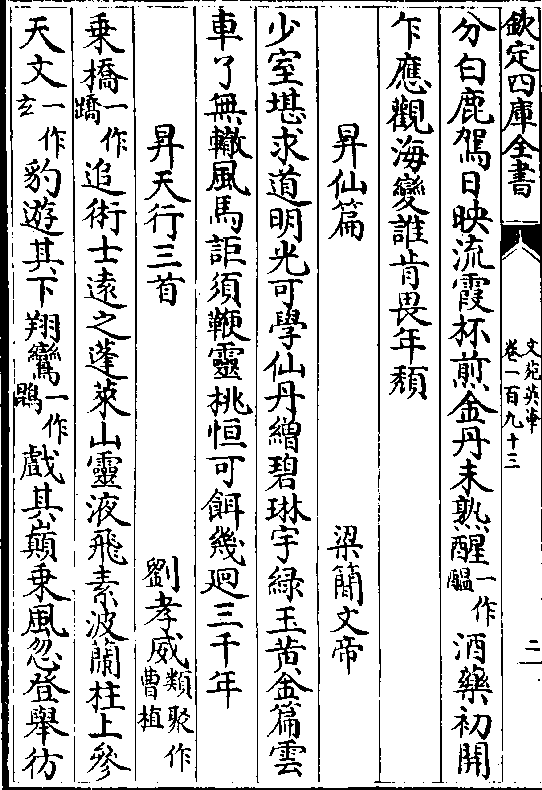 欽定四庫全書
文苑英華
卷一百九十三
二
分白鹿駕日映流霞杯煎金丹未熟醒一作醖酒藥初開
乍應觀海變誰肯畏年頽
昇仙篇 梁簡文帝
少室堪求道明光可學仙丹繒碧琳宇緑玉黄金篇雲
車了無轍風馬詎須鞭靈桃恒可餌幾廻三千年
昇天行三首 劉孝威類聚作曹植
乗橋一作蹻追術士逺之蓬萊山靈液飛素波蘭桂上參
天文一作玄豹遊其下翔鸞一作鵾戲其巔乗風忽登舉彷